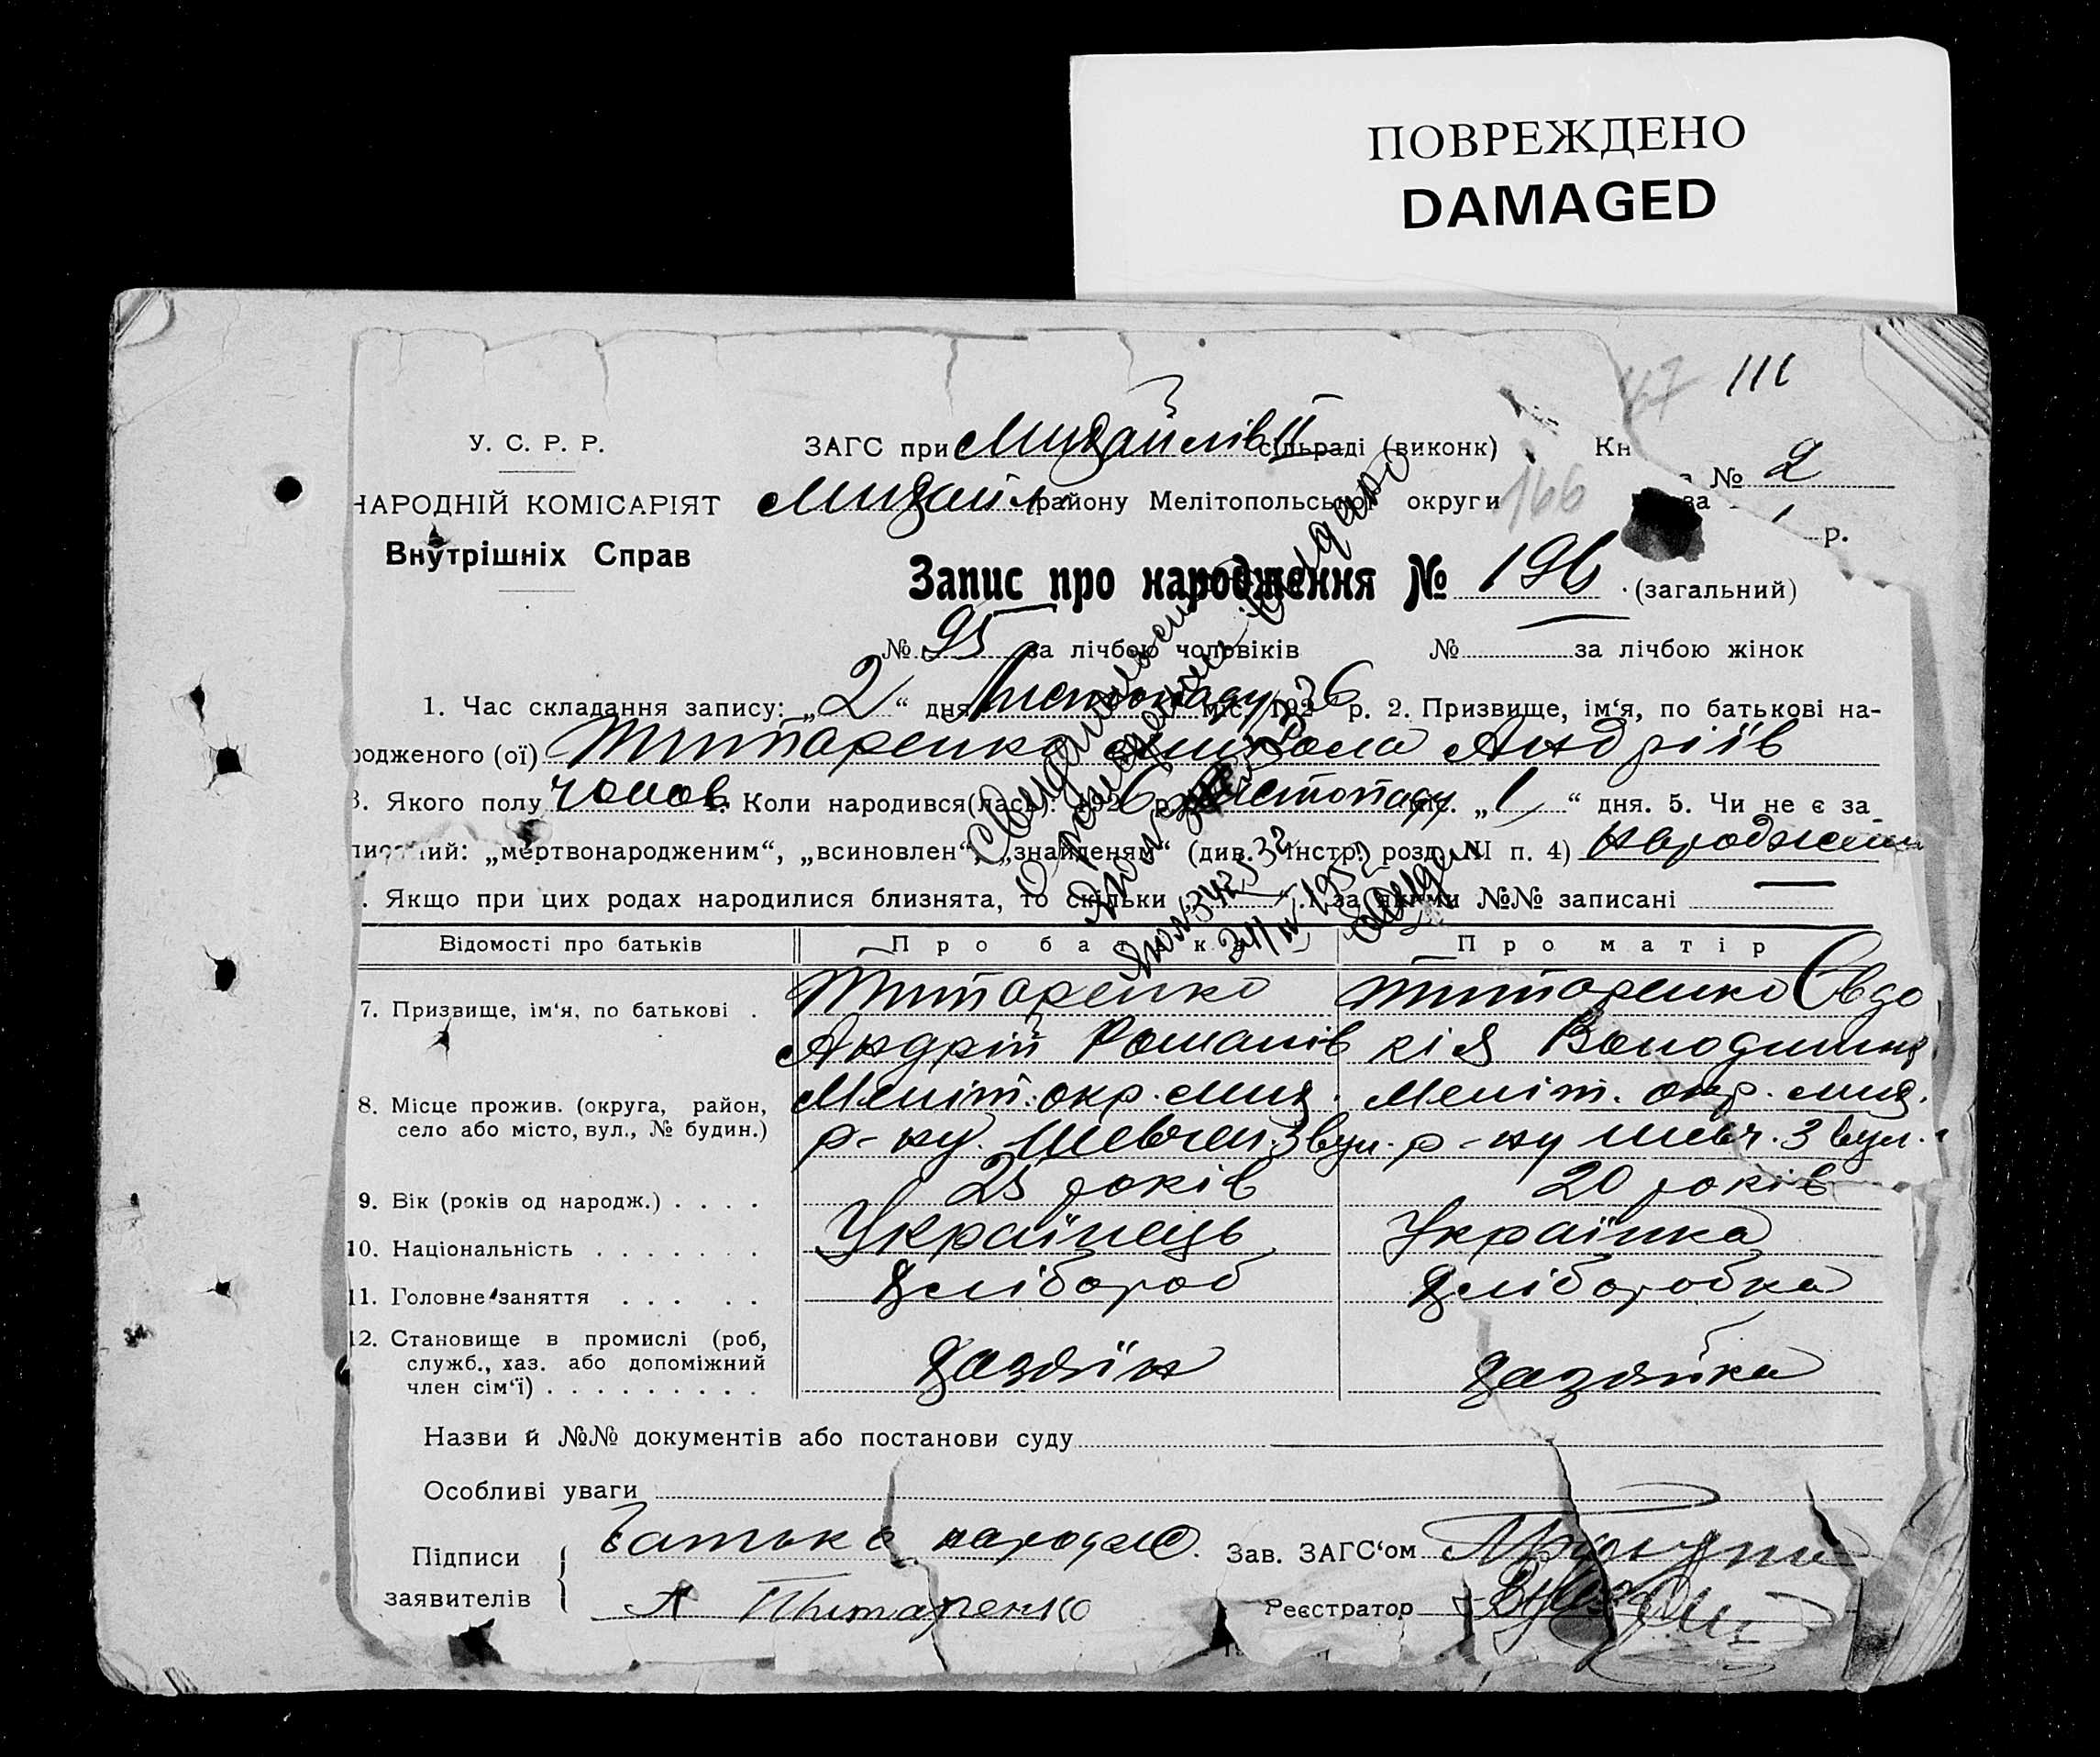 ПОВРЕЖДЕНО
DAMAGED
47 111
У. С. Р. Р.
ЗАГС при Михайлів II сільраді (виконк) Кн № 2
НАРОДНІЙ КОМІСАРІЯТ
Михайл району Мелітопольської округи 166 за р.
Внутрішніх Справ
Запис про народження № 196 (загальний)
№ 95 за лічбою чоловіків № за лічбою жінок
1. Час складання запису: „2“ дня листопаду міс. 1926 р. 2. Призвище, ім‘я, по батькові на-
родженого (ої) Титаренко Микола Андріїв
3. Якого полу чолов. 4. Коли народився(лась): 1926 р. листопаду міс. „1“ дня. 5. Чи не є за
писаний: „мертвонародженим“, „всиновлен“, „знайденям“ (див. Інстр. розд. III п. 4) народжений
. Якщо при цих родах народилися близнята, то скільки і за якими №№ записані
Відомості про батьків Про батька Про матір
7. Призвище, ім‘я, по батькові . Титаренко Титаренко Євдо
Андрій Романів кія Володимир
8. Місце прожив. (округа, район, Меліт. окр. Мих. Меліт. окр. Мих.
село або місто, вул., № будин.) р-ну. Шевчен. 3 вул. р-ну Шевч. 3 вул.
9. Вік (років од народж.) . . . . 25 років 20 років
10. Національність . . . . . . . Українець Українка
11. Головне заняття . . . . . Хлібороб Хліборобка
12. Становище в промислі (роб,
служб., хаз. або допоміжний хазяїн хазяйка
член сім‘ї) . . . . . . . . .
Назви й №№ документів або постанови суду
Особливі уваги
Підписи Батько народж. Зав. ЗАГС‘ом
заявителів А Титаренко Реєстратор